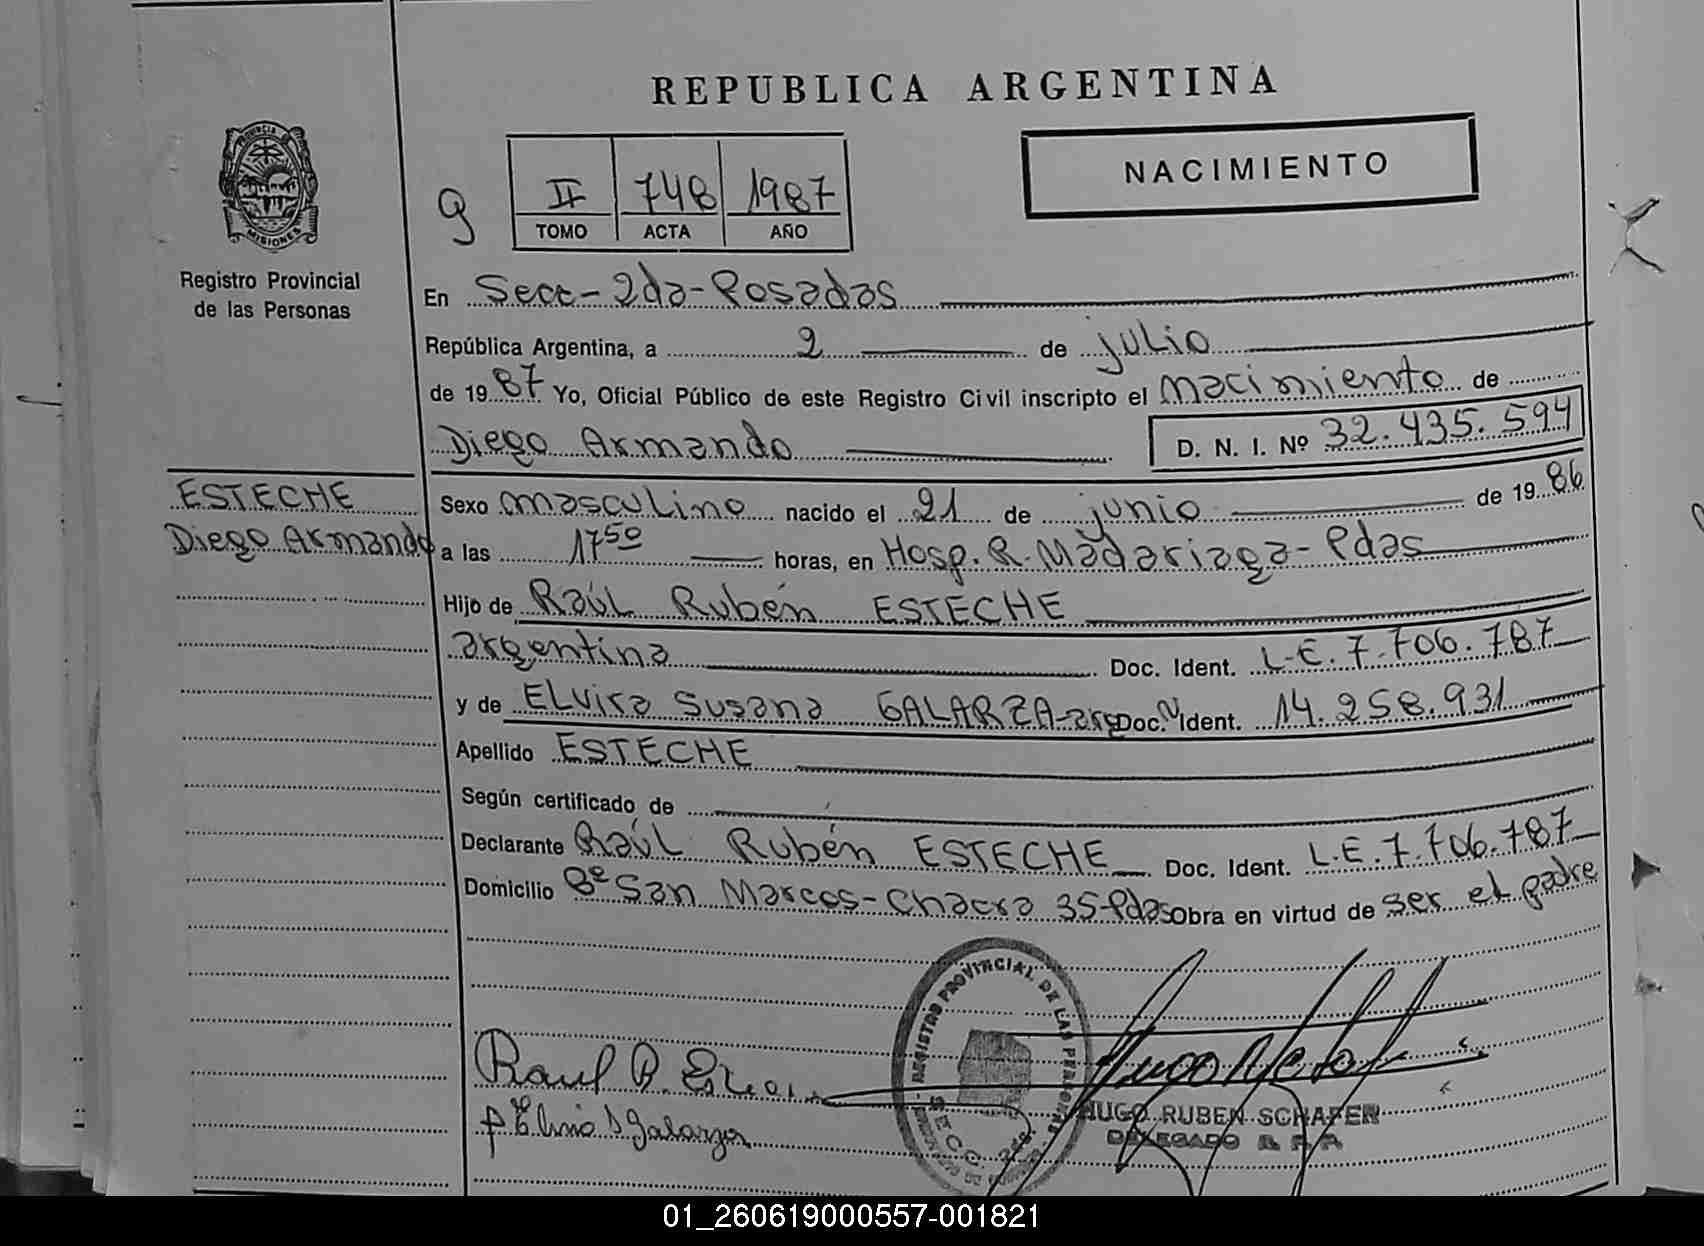 REPUBLICA ARGENTINA
PROVINCIA DE
MISIONES
Registro Provincial
de las Personas
9
II 748 1987
TOMO ACTA AÑO
NACIMIENTO
En Secc-2da-Posadas
República Argentina, a 2 de julio
de 1987 Yo, Oficial Público de este Registro Civil inscripto el nacimiento de
Diego Armando D. N. I. Nº 32.435.594
ESTECHE
Diego Armando
Sexo masculino nacido el 21 de junio de 1986
a las 17⁵⁰ horas, en Hosp. R. Madariaga-Pdas
Hijo de Raúl Rubén ESTECHE
argentina Doc. Ident. L.E. 7.706.787
y de ELvira Susana GALARZA-arg Doc. Ident. 14.258.931
Apellido ESTECHE
Según certificado de
Declarante Raúl Rubén ESTECHE Doc. Ident. L.E.7.706.787
Domicilio Bº San Marcos-Chacra 35-Pdas Obra en virtud de ser el padre
REGISTRO PROVINCIAL DE LAS PERSONAS
SECC. 2da.
Raul R. Esteche
HUGO RUBEN SCHAFER
DELEGADO R. P. P.
01_260619000557-001821